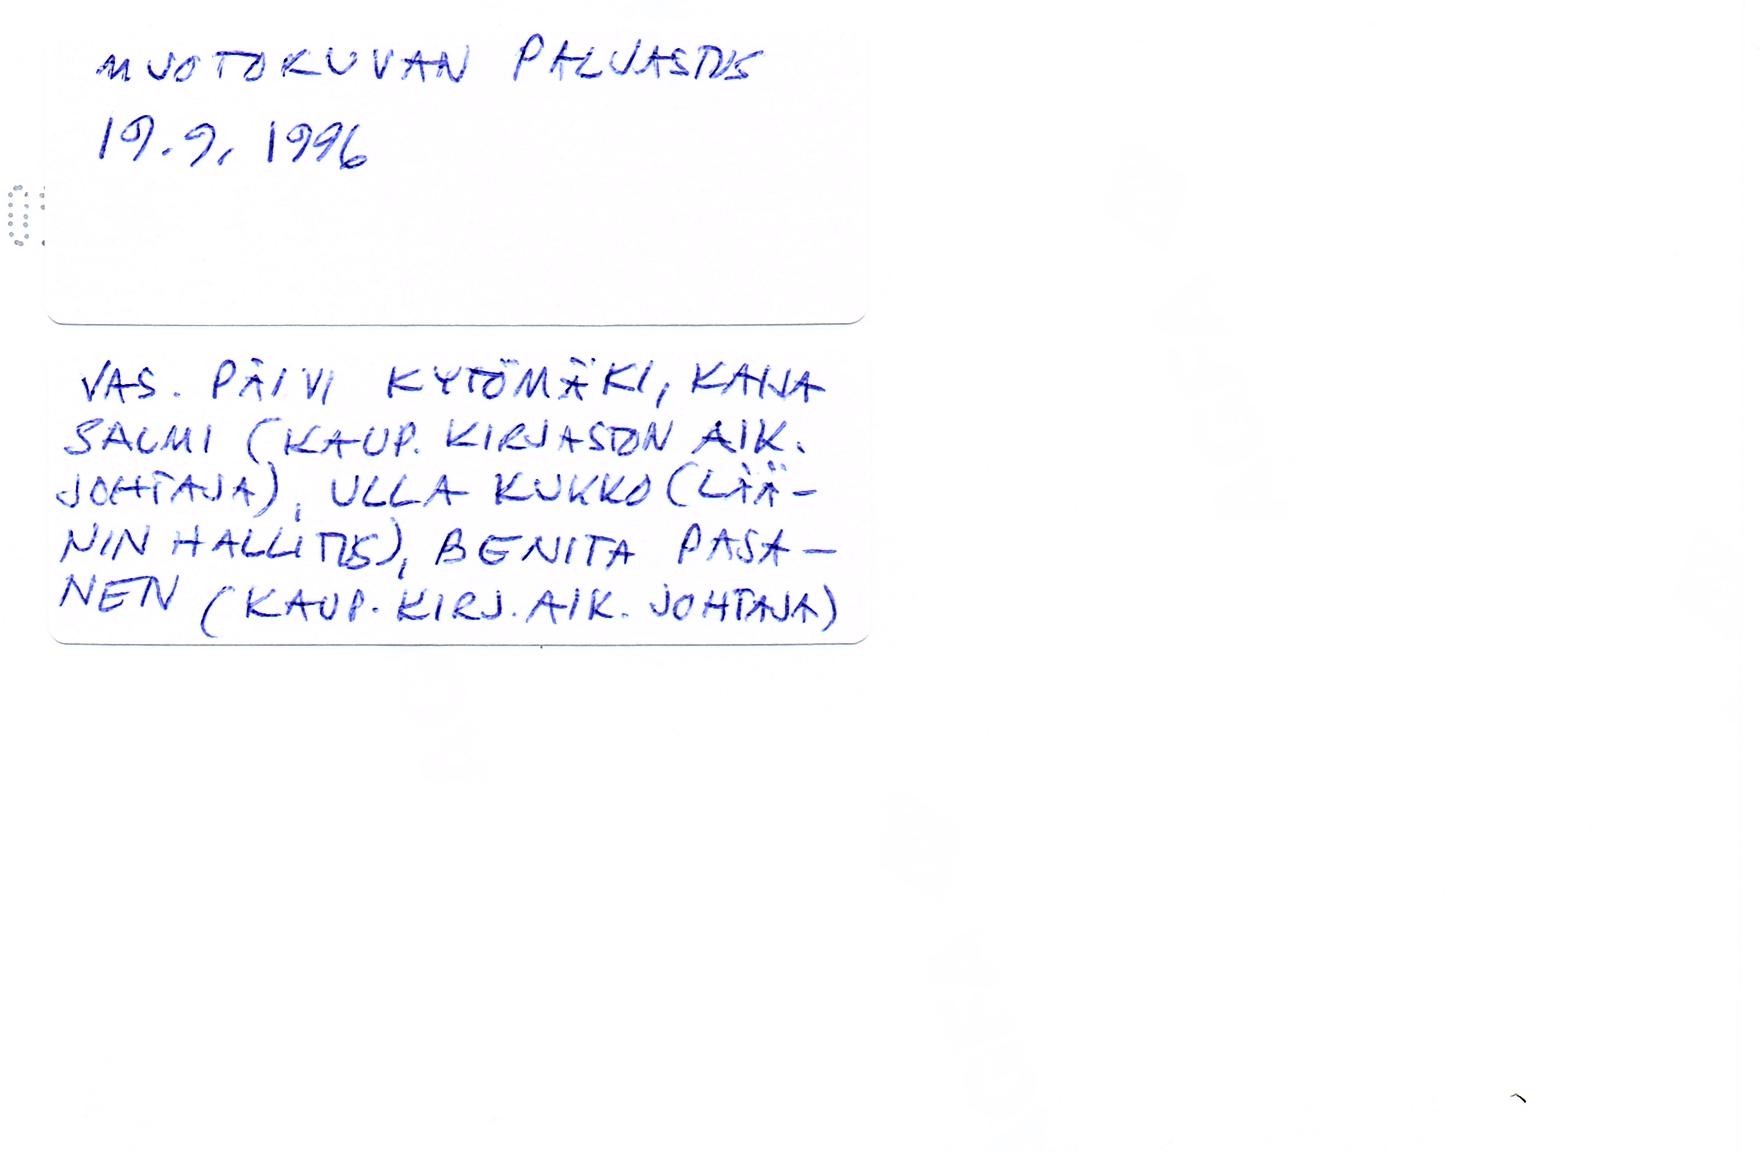 MUOTOKUVAN PALJASTUS
19.9. 1996
VAS. PÄIVI KYTÖMÄKI, KAIJA
SALMI (KAUP. KIRJASTON AIK.
JOHTAJA), ULLA KUKKO (LÄÄ-
NINHALLITUS), BENITA PASA-
NEN (KAUP. KIRJ. AIK. JOHTAJA)